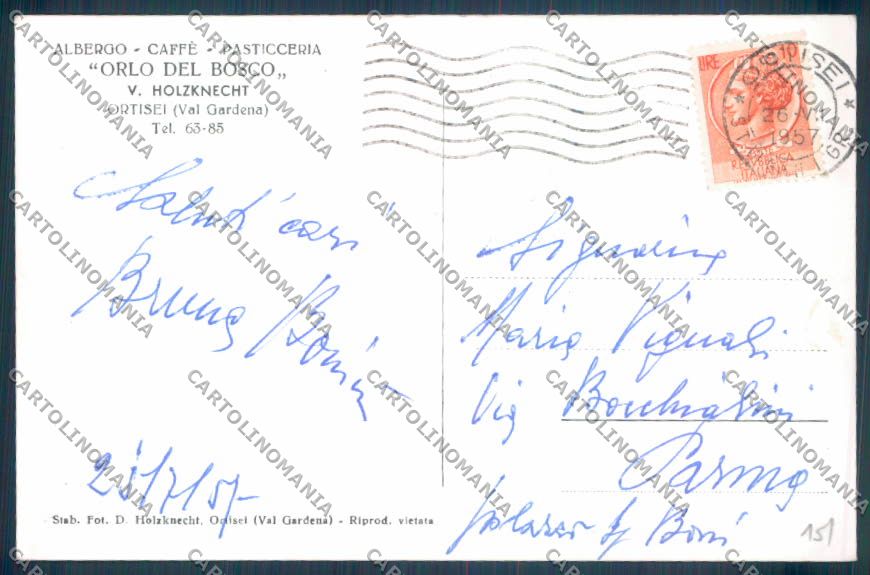 ALBERGO - CAFFÈ - PASTICCERIA
"ORLO DEL BOSCO„
V. HOLZKNECHT
ORTISEI (Val Gardena)
Tel. 63-85
LIRE 10
REPUBBLICA
ITALIANA
ORTISEI
26
1957
Saluti cari
Bruna
/7/57
Stab. Fot. D. Holzknecht, Ortisei (Val Gardena) - Riprod. vietata
Signorina
Maria Vignali
Via Bocchialini
Parma
palazzo Boni
151
CARTOLINOMANIA